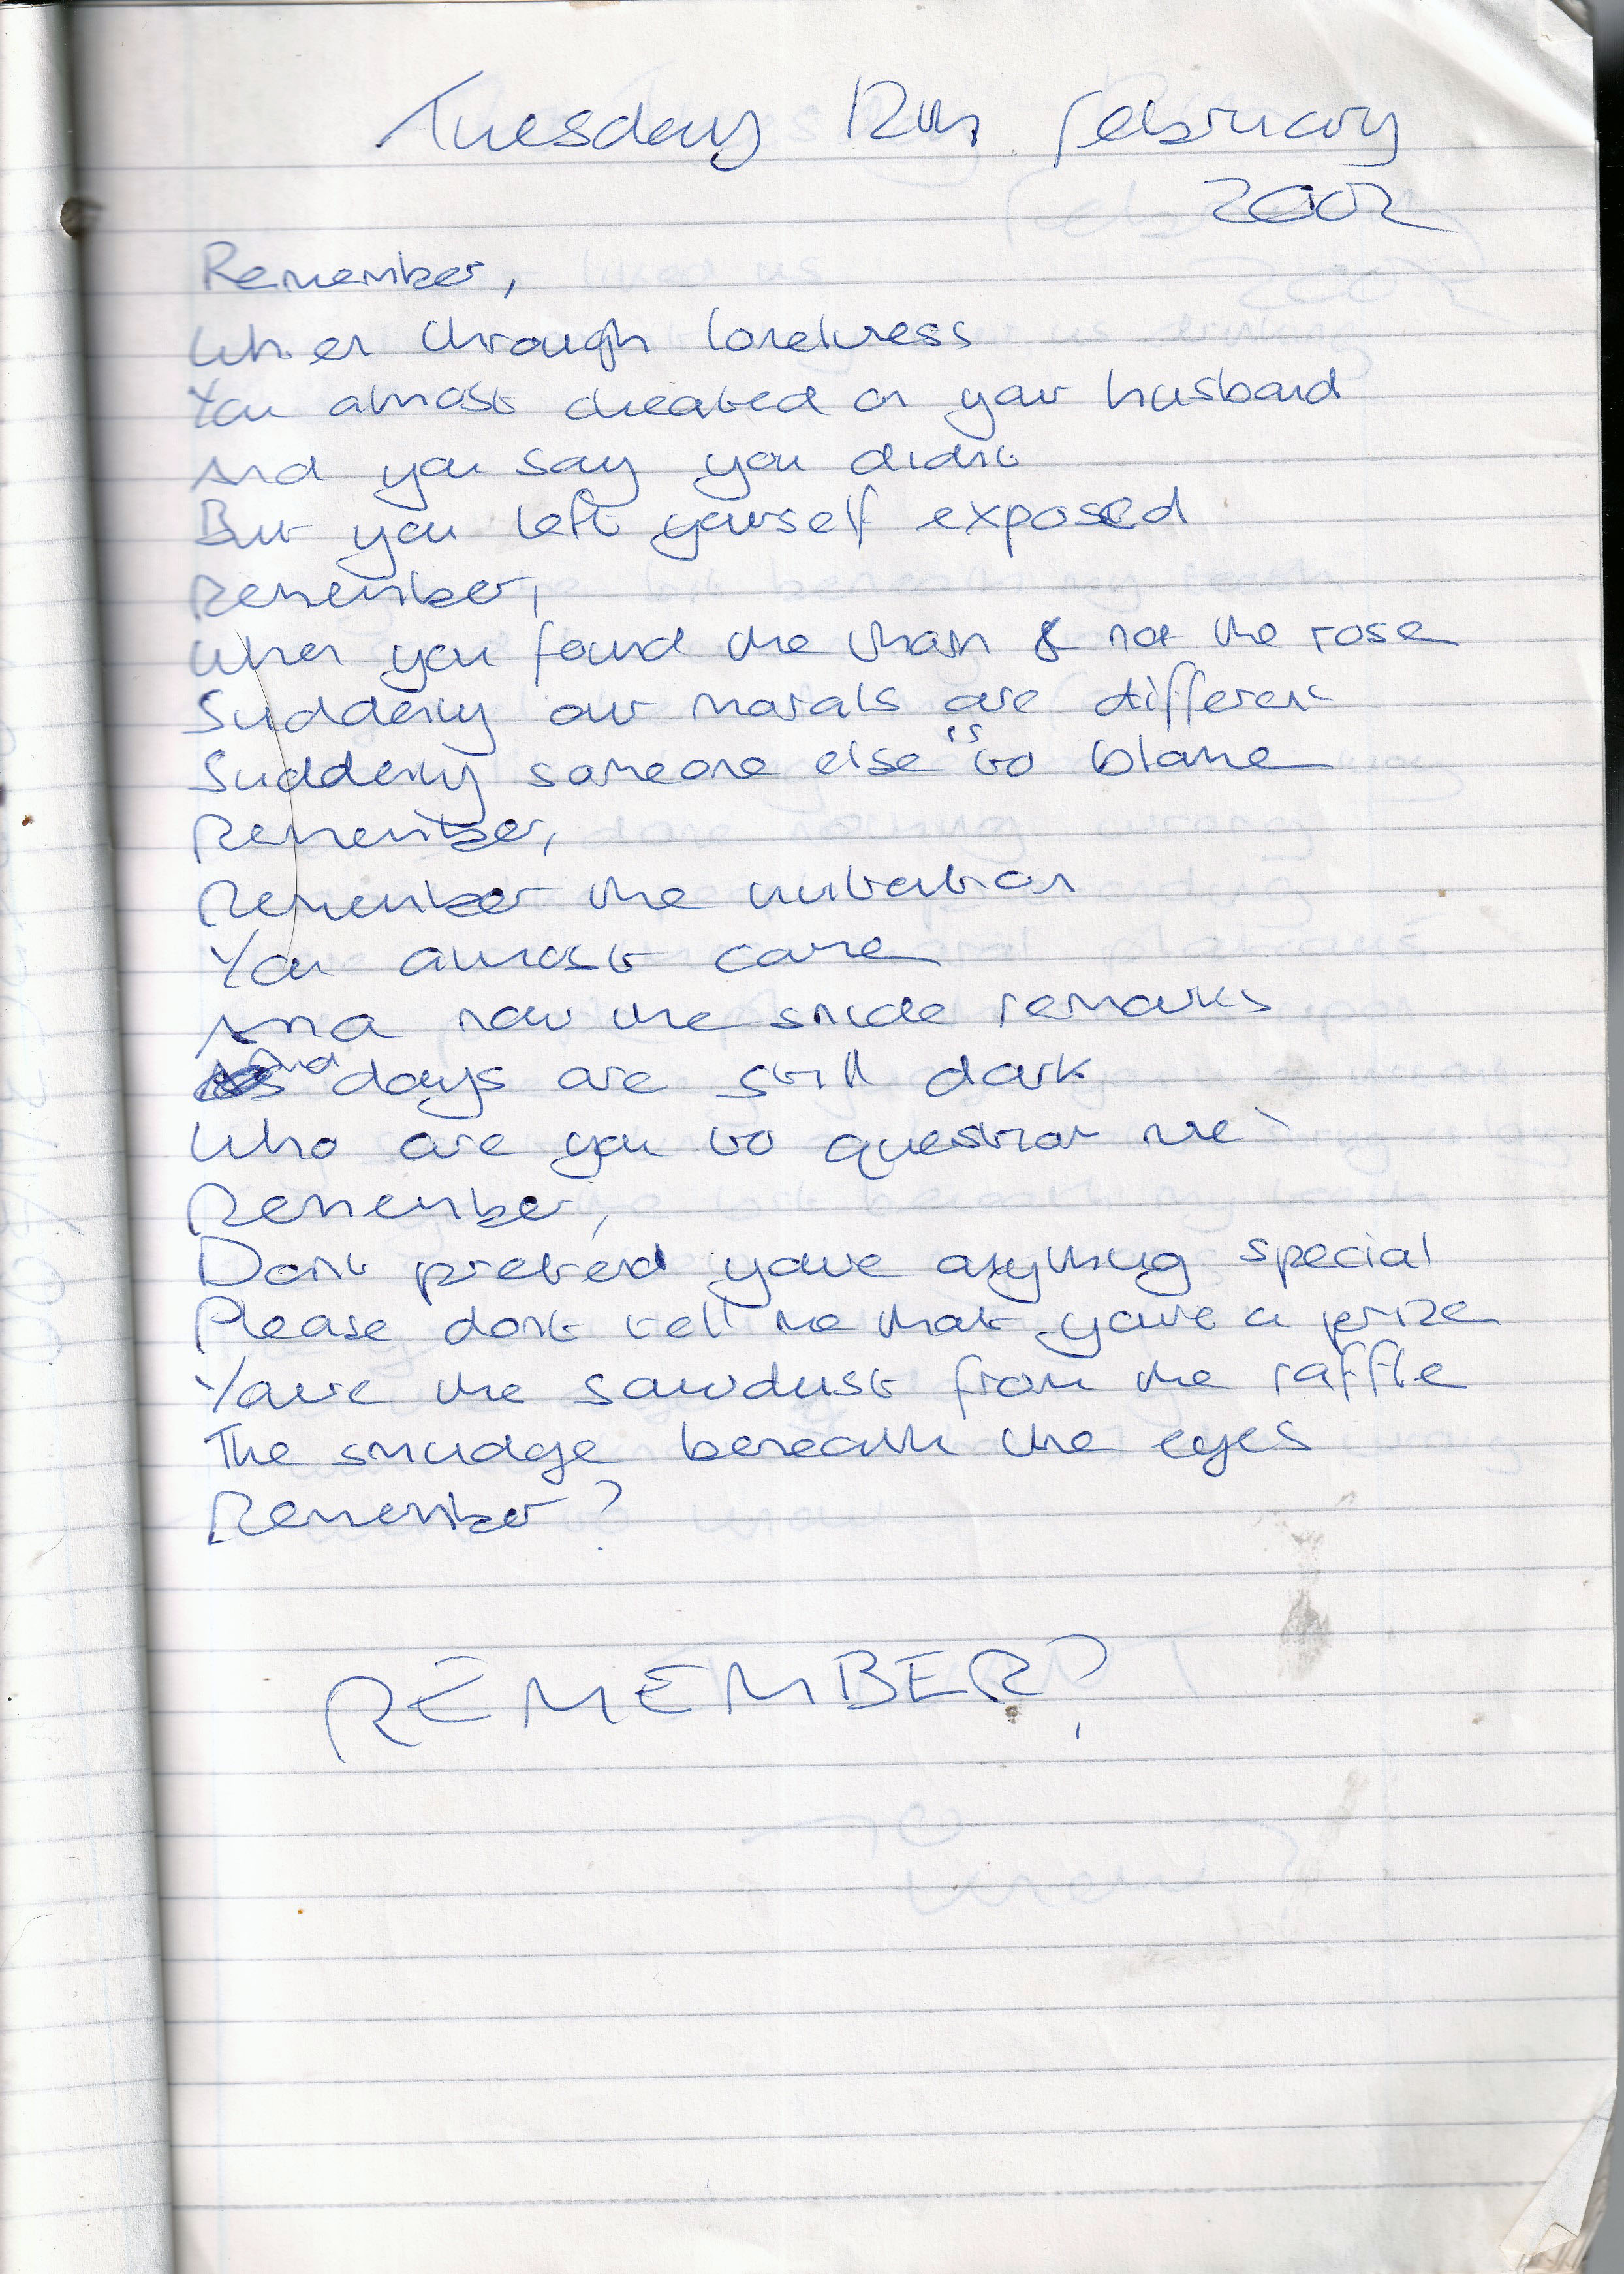 Tuesday 12th February
2002
Remember,
When through loneliness
You almost cheated on your husband
And you say you didnt
But you left yourself exposed
Remember,
When you found the thorn & not the rose
Suddenly our morals are different
Suddenly someone else is to blame
Remember,
Remember the invitation
You almost came
And now the snide remarks
And days are still dark
Who are you to question me
Remember,
Dont pretend youre anything special
Please dont tell me that youre a prize
Youre the sawdust from the raffle
The smudge beneath the eyes
Remember?
REMEMBER?